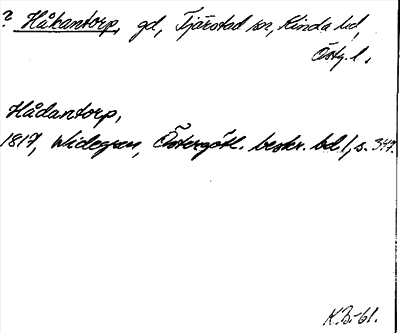 ? Håkantorp, gd, Tjärstad sn, Kinda hd,
Östg. l.,
Hådantorp,
1817, Widegren, Östergötl. beskr. bd. 1, s. 347.
K.B.-61.